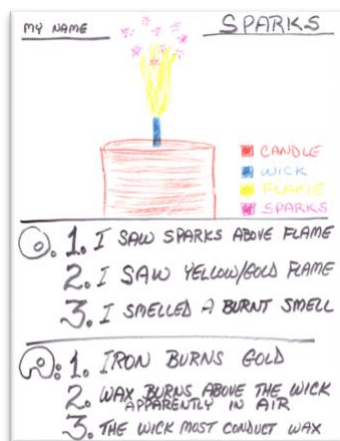 MY NAME
SPARKS
CANDLE
WICK
FLAME
SPARKS
O: 1. I SAW SPARKS ABOVE FLAME
2. I SAW YELLOW/GOLD FLAME
3. I SMELLED A BURNT SMELL
R: 1. IRON BURNS GOLD
2. WAX BURNS ABOVE THE WICK
APPARENTLY IN AIR
3. THE WICK MOST CONDUCT WAX